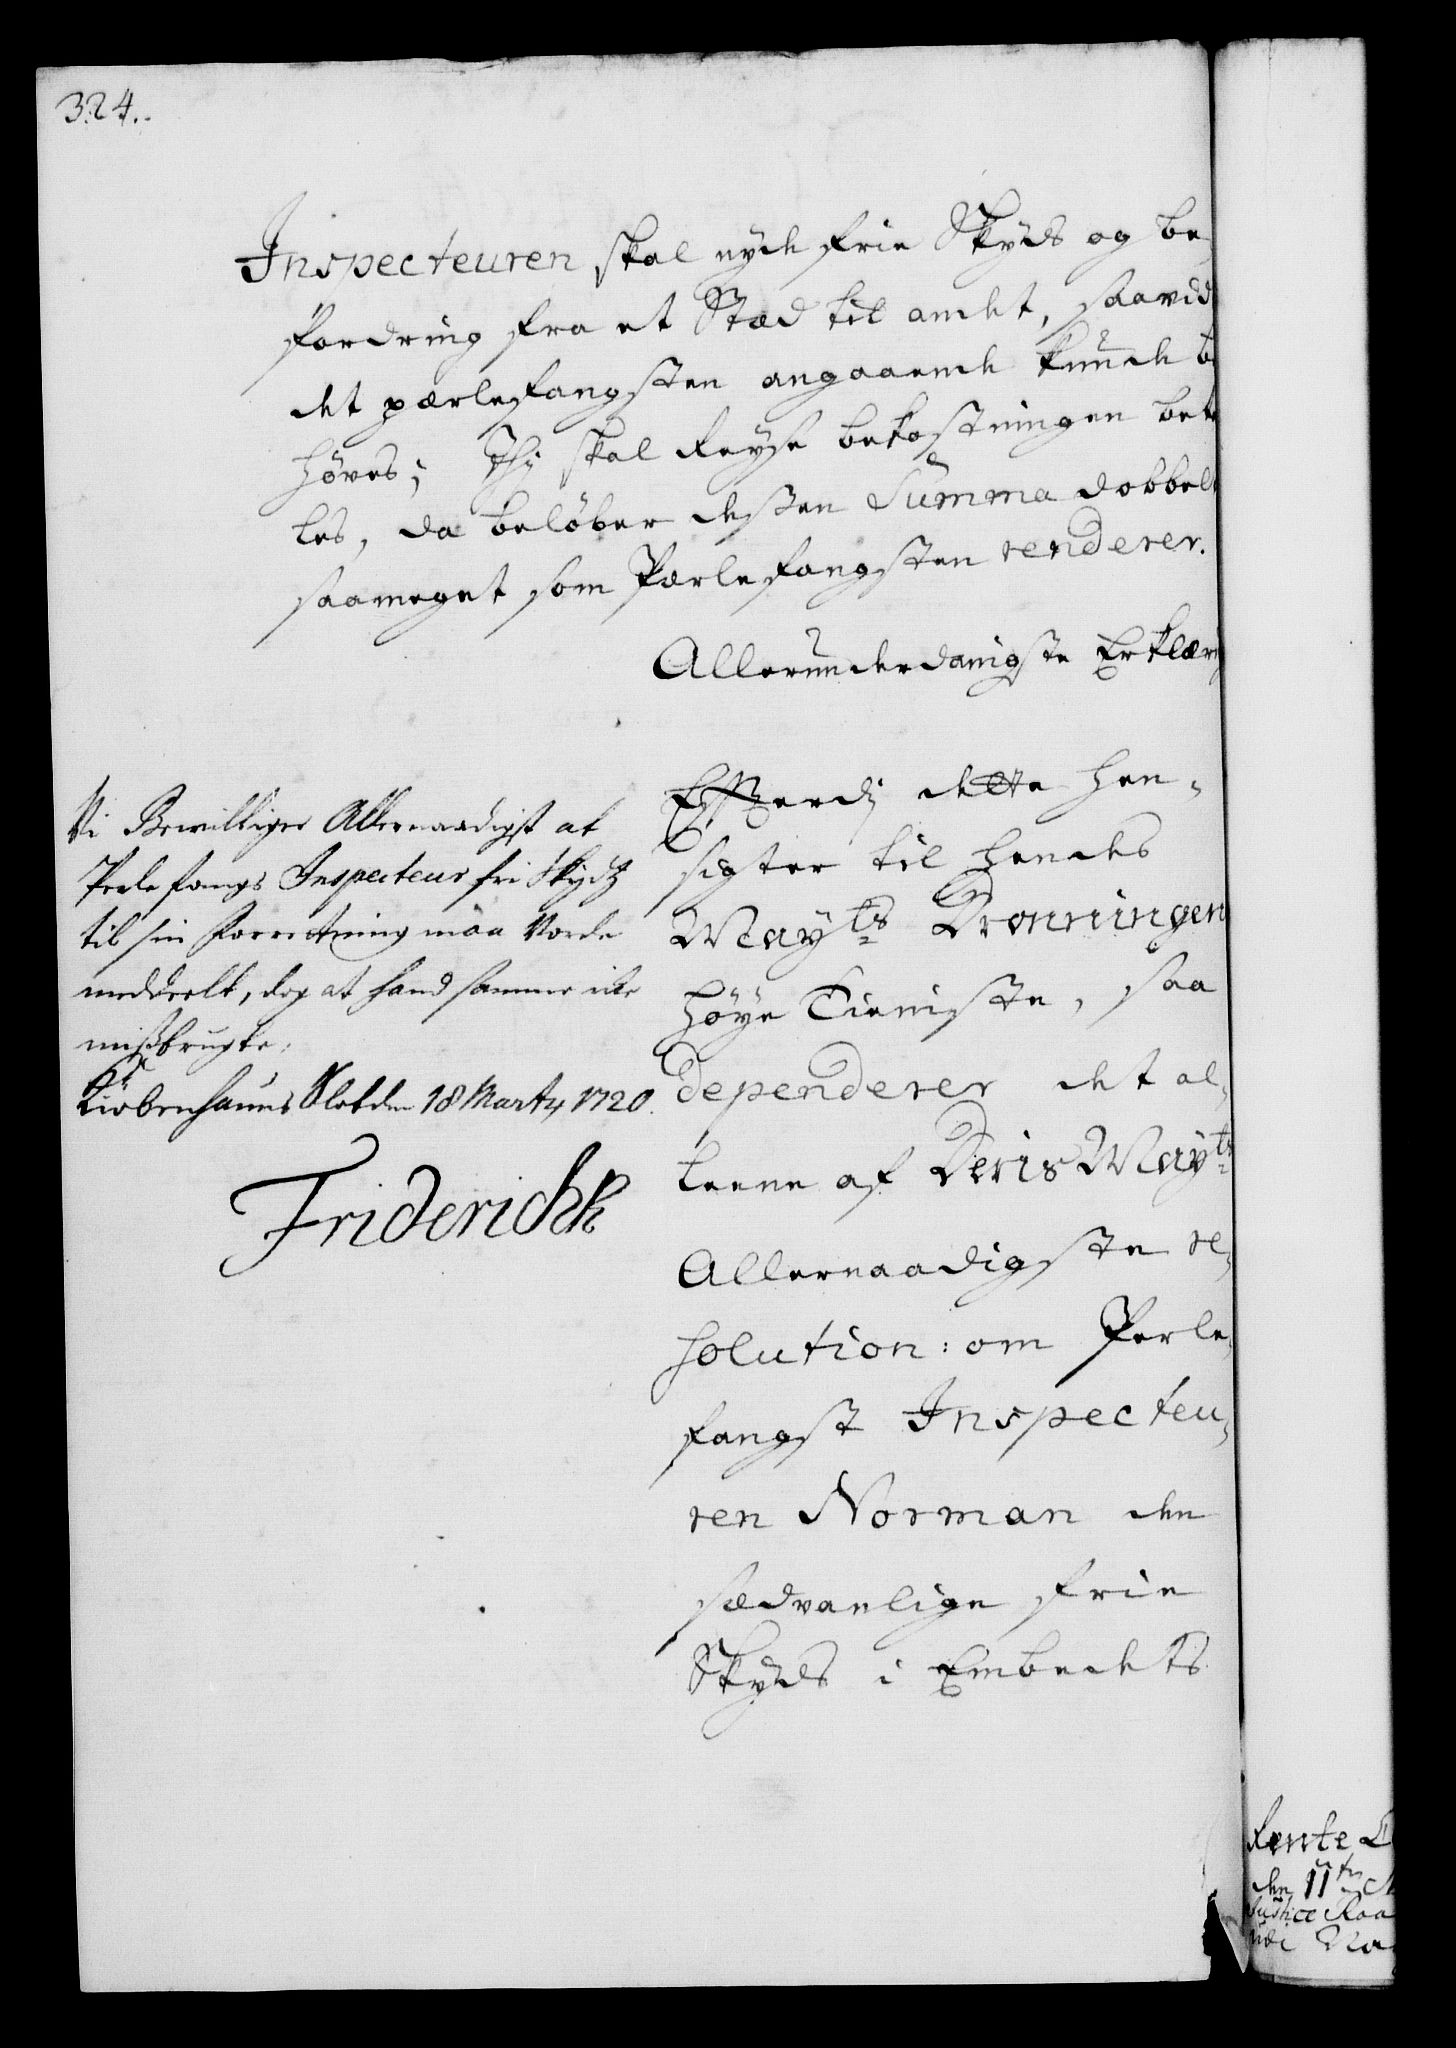 324.
Inspecteuren skal nyde frie Skyds og be-
fordring fra et Stæd til andet, saavidt
det pærlefangsten angaaende kunde be
høves; Thj skal Reyse bekostningen beta
les, da beløber desten Summa dobbelt
saameget som Pærlefangsten renderer.
Allerunderdanigste Erklæring
Vi Bewilliger Allernaadigst at
Perle fangs Inspecteur fri Skydtz
til sin Forretning maa Vorde
meddeelt, dog at hand samme icke
misbrugte.
Kiøbenhauns Slot den 18 Martj 1720.
Friderich R
Efterdj dette hen-
sigter til hendes
Mayts Dronningen
høye Tieniste, saa
dependerer det al-
leene af Deris Mayts
Allernaadigste re-
solution: om Perle-
fangst Inspecteu-
ren Norman den
sædvanlige frie
Skyds i Embedets
Rente C
den 11te M
Justice Raa
Na